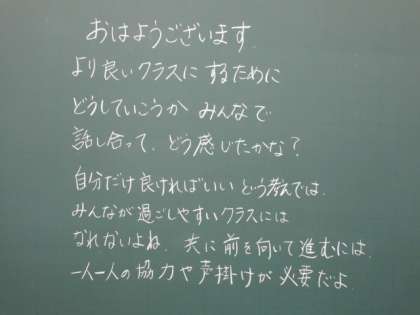 おはようございます
より良いクラスにするために
どうしていこうか みんなで
話し合って、どう感じたかな?
自分だけ良ければいいという考えでは、
みんなが過ごしやすいクラスには
なれないよね。共に前を向いて進むには、
一人一人の協力や声掛けが必要だよ